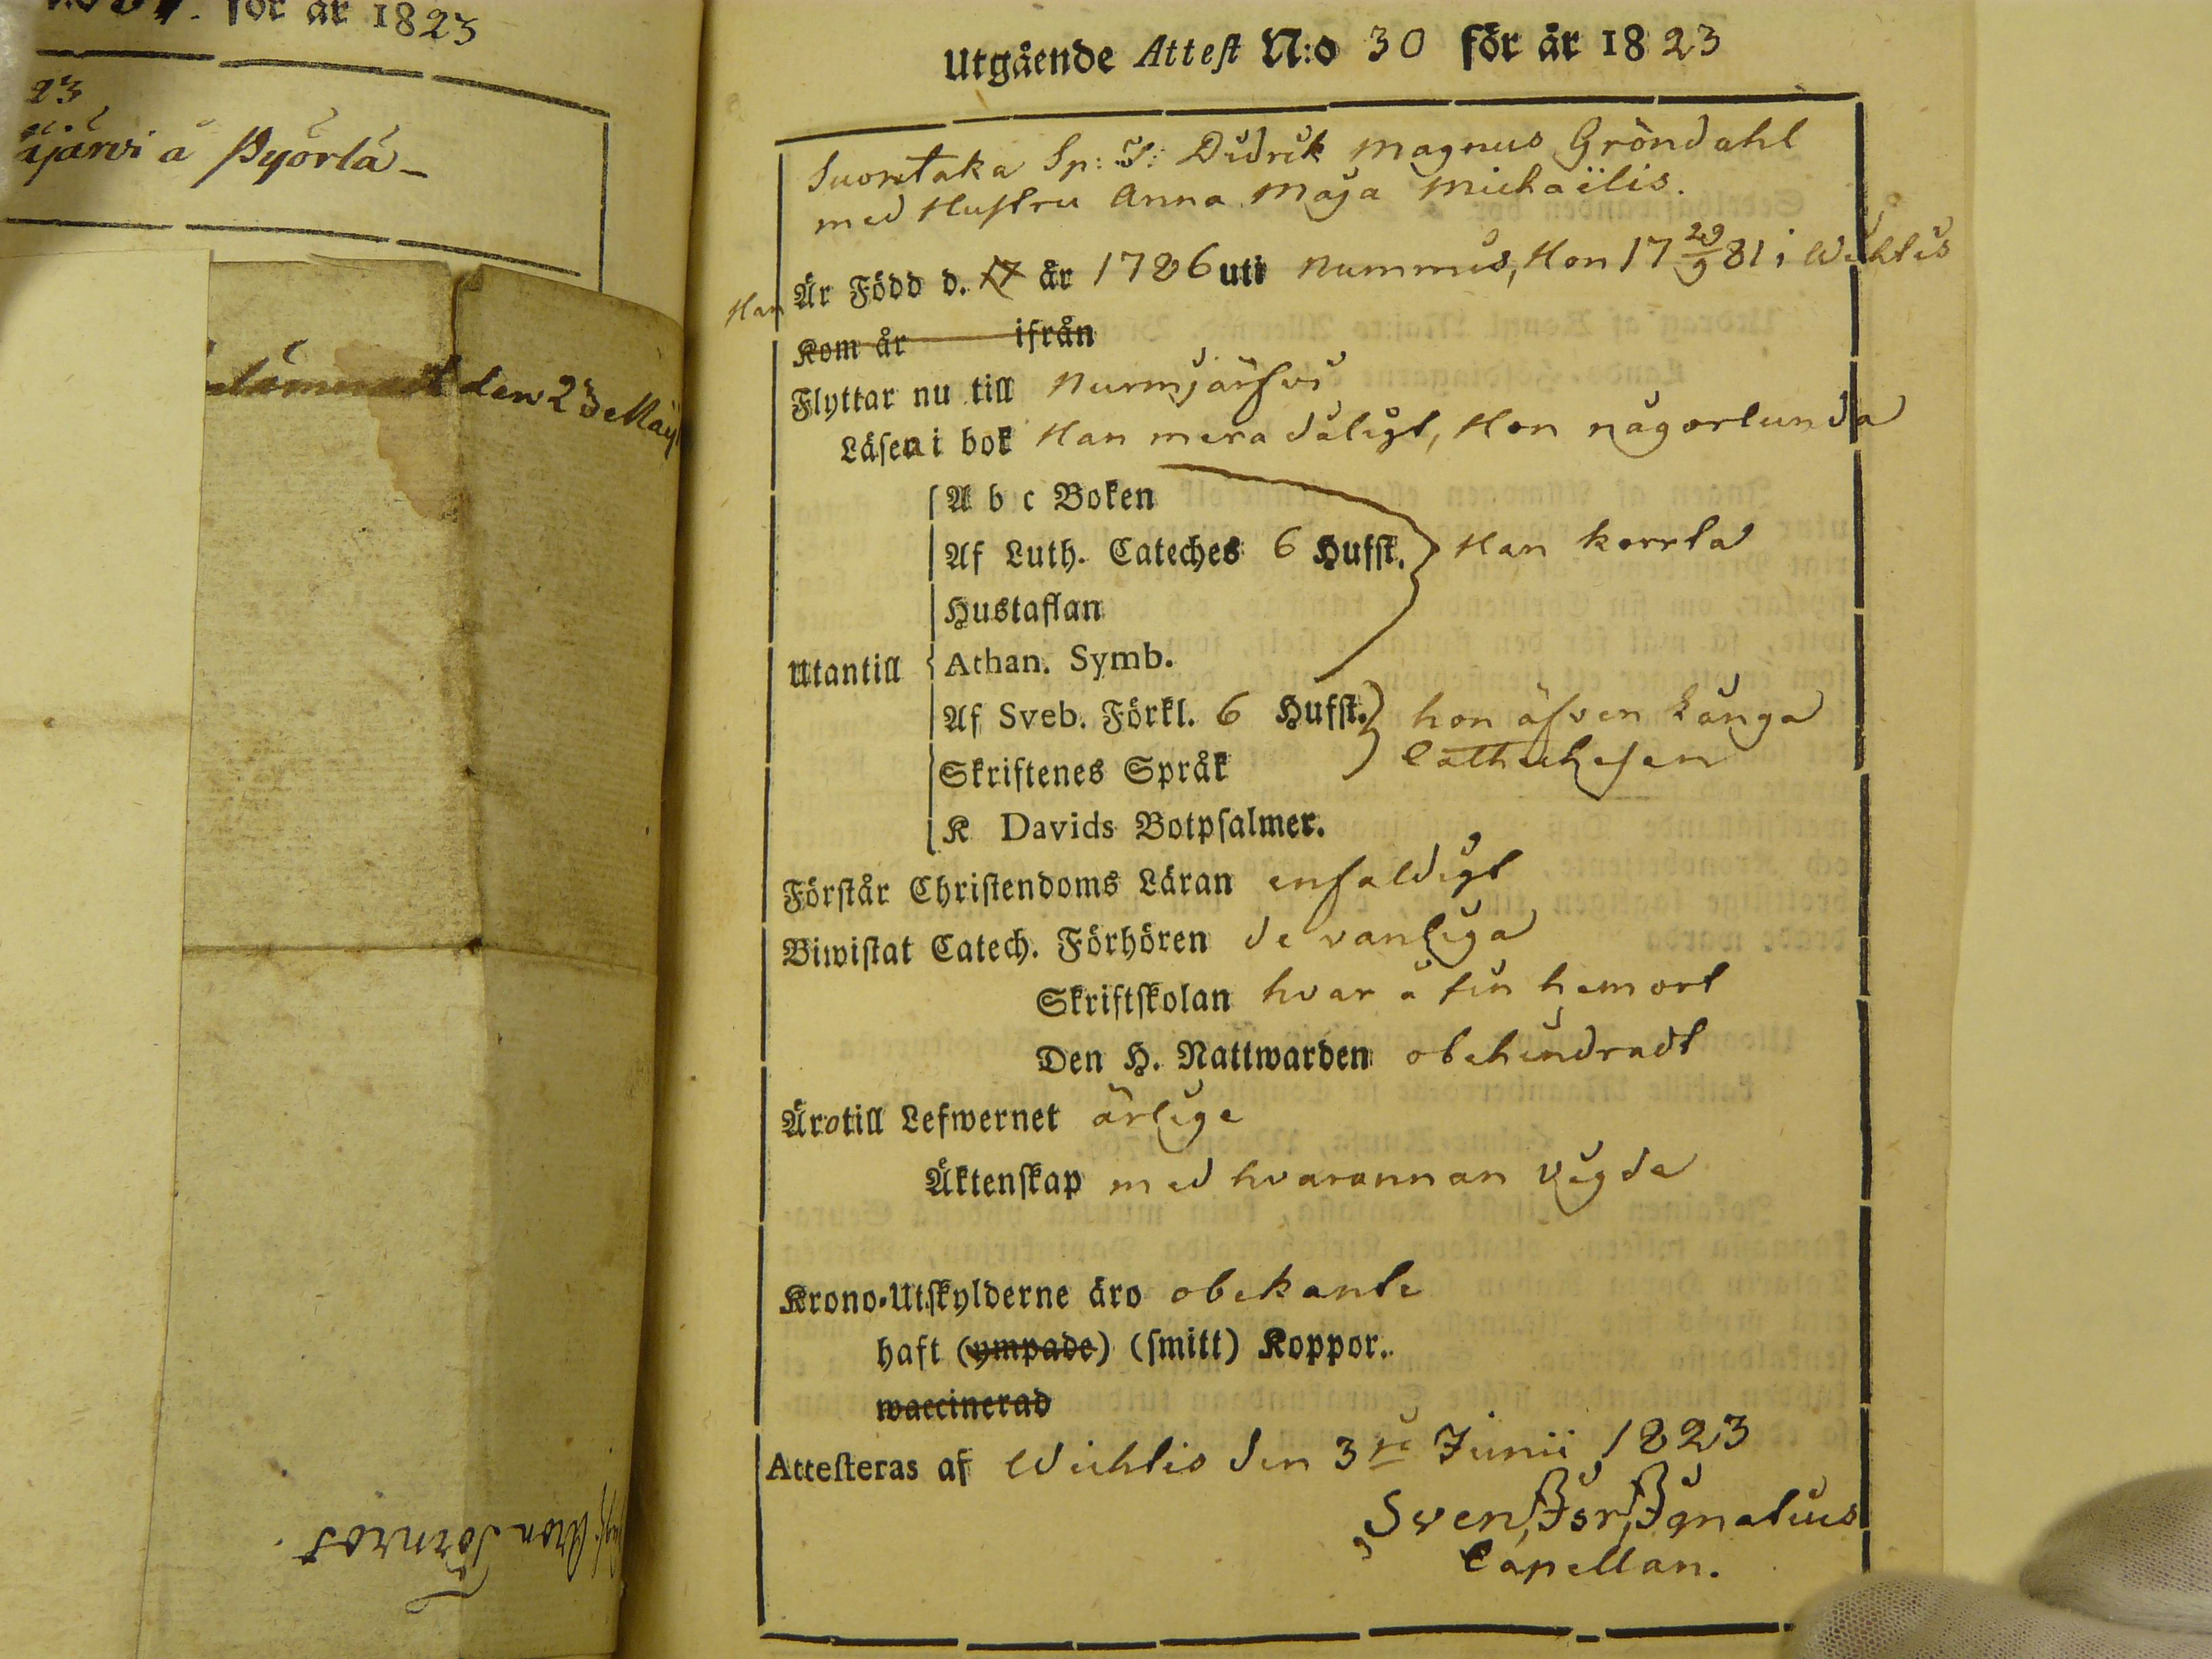 för år 1823
23
järvi å Pyörlä
den 23 Maij
Aron Törnrot.
Utgående Attest N:o 30 för år 1823
Suontaka Sp: S: Didrik Magnus Gröndahl
med Hustru Anna Maja Michaëlis.
Han Är Född d. 17 år 1786 uti Nummis, Hon 17 29/9 81 i Wichtis
Kom år ifrån
Flyttar nu till Nurmjärfvi
Läsen i bok Han mera dåligt, Hon någorlunda
A b c Boken
Af Luth. Cateches 6 Hufst. Han korrta
Hustaflan
Utantill Athan. Symb.
Af Sveb. Förkl. 6 Hufst. hon äfven långa
Skriftenes Språk Cathechesen
K Davids Botpsalmer.
Förstår Christendoms Läran enfaldigt
Biwistat Catech. Förhören de vanliga
Skriftskolan hvar å sin hemort
Den H. Nattwarden obehindradt
Äro till Lefwernet ärlige
Äktenskap med hvarannan vigde
Krono-Utskylderne äro obekante
haft (ympade) (smitt) Koppor.
waccinerad
Attesteras af Wichtis den 3 Junii 1823
Sven Isr Ignatius
Capellan.